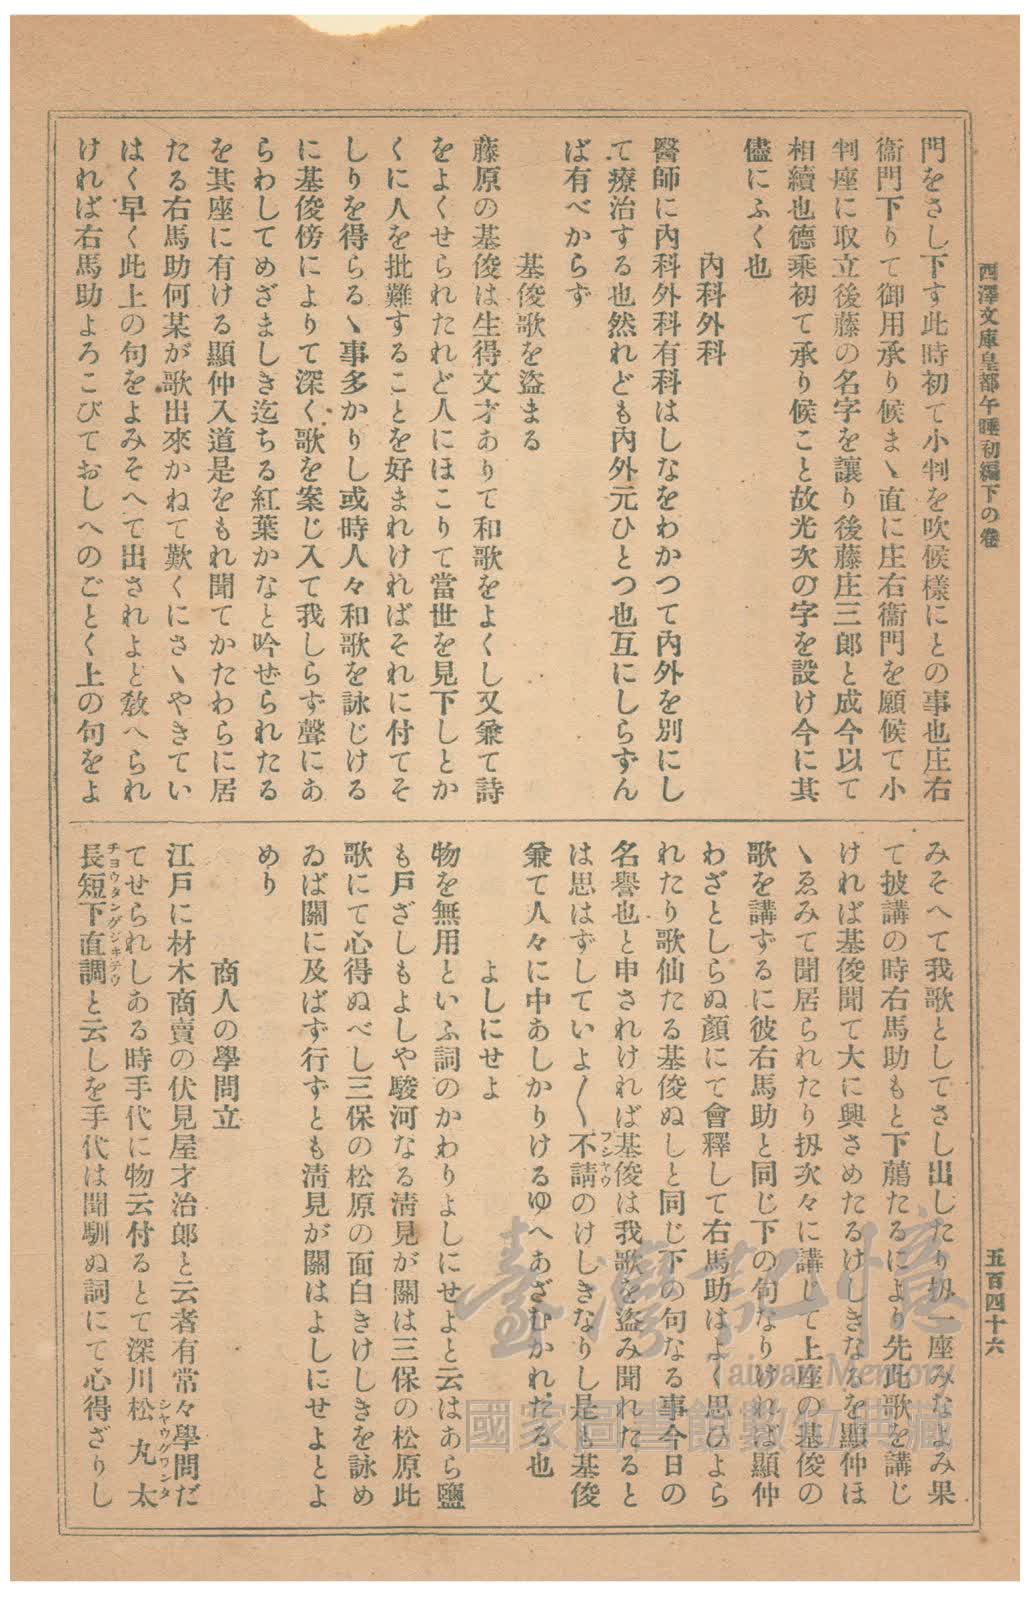 西澤文庫皇都午睡初編下の卷
五百四十六
門をさし下す此時初て小判を吹候樣にとの事也庄右
衞門下りて御用承り候まゝ直に庄右衞門を願候て小
判座に取立後藤の名字を讓り後藤庄三郎と成今以て
相續也德乘初て承り候こと故光次の字を設け今に其
儘にふく也
內科外科
醫師に內科外科有科はしなをわかつて內外を別にし
て療治する也然れども內外元ひとつ也互にしらずん
ば有べからず
基俊歌を盜まる
藤原の基俊は生得文才ありて和歌をよくし又兼て詩
をよくせられたれど人にほこりて當世を見下しとか
くに人を批難することを好まれければそれに付てそ
しりを得らるゝ事多かりし或時人々和歌を詠じける
に基俊傍によりて深く歌を案じ入て我しらず聲にあ
らわしてめざましき迄ちる紅葉かなと吟ぜられたる
を其座に有ける顯仲入道是をもれ聞てかたわらに居
たる右馬助何某が歌出來かねて歎くにさゝやきてい
はく早く此上の句をよみそへて出されよと敎へられ
ければ右馬助よろこびておしへのごとく上の句をよ
みそへて我歌としてさし出したり扨一座みなよみ果
て披講の時右馬助もと下﨟たるにより先此歌を講じ
ければ基俊聞て大に興さめたるけしきなるを顯仲ほ
ゝゑみて聞居られたり扨次々に講じて上座の基俊の
歌を講ずるに彼右馬助と同じ下の句なりければ顯仲
わざとしらぬ顔にて會釋して右馬助はよく思ひよら
れたり歌仙たる基俊ぬしと同じ下の句なる事今日の
名譽也と申されければ基俊は我歌を盜み聞れたると
は思はずしていよ〱不請のけしきなりし是も基俊
フシヤウ
兼て人々に中あしかりけるゆへあざむかれたる也
よしにせよ
物を無用といふ詞のかわりよしにせよと云はあら鹽
も戸ざしもよしや駿河なる淸見が關は三保の松原此
歌にて心得ぬべし三保の松原の面白きけしきを詠め
ゐば關に及ばず行ずとも淸見が關はよしにせよとよ
めり
商人の學問立
江戸に材木商賣の伏見屋才治郎と云者有常々學問だ
てせられしある時手代に物云付るとて深川松丸太
シヤウグワンタ
長短下直調と云しを手代は聞馴ぬ詞にて心得ざりし
チヨウタングジキテウ
臺灣記憶
Taiwan Memory
國家圖書館數位典藏